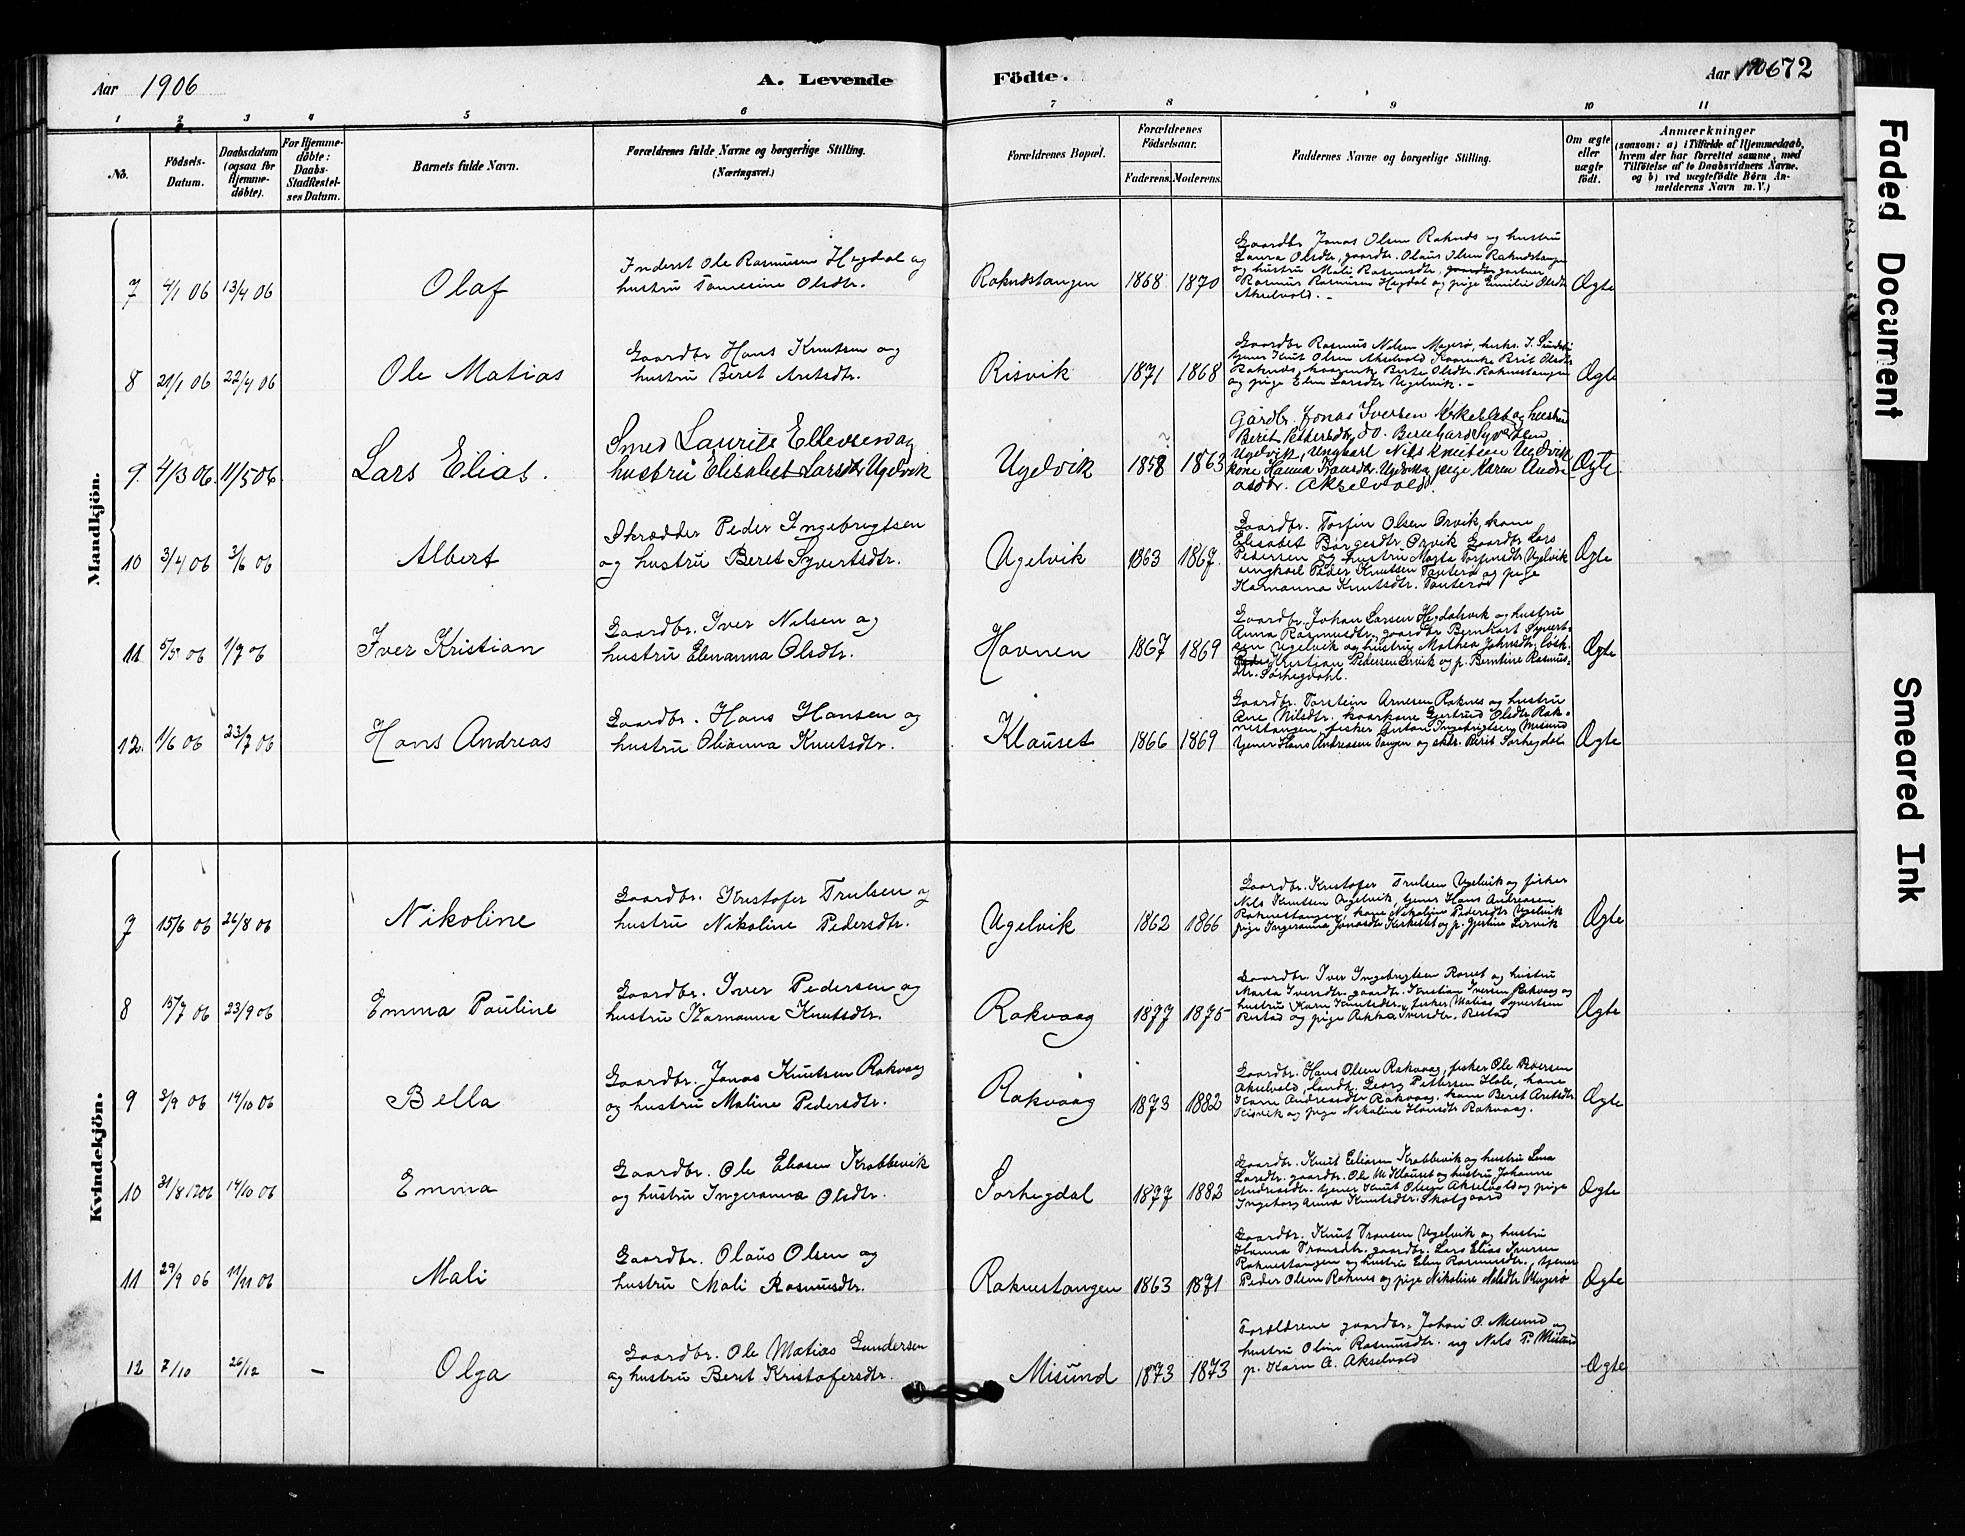 Aar 1906
A. Levende
Födte.
Aar 1906
72
1 2 3 4 5 6 7 8 9 10 11
No.
Födsels-Datum.
Daabsdatum (ogsaa for Hjemme-döbte).
For Hjemme-döbte: Daabs-Stadfestel-ses Datum.
Barnets fulde Navn.
Forældrenes fulde Navne og borgerlige Stilling. (Næringsvei.)
Forældrenes Bopæl.
Forældrenes Födselsaar.
Faderens. Moderens.
Faddernes Navne og borgerlige Stilling.
Om ægte eller uægte födt.
Anmærkninger
(saasom: a) i Tilfælde af Hjemmedaab, hvem der har forrettet samme, med Tilföielse af to Daabsvidners Navne. og b) ved uægtefödte Børn An-melderens Navn m. V.)
Mandkjön.
7 4/1 06 13/4 06 Olaf
Inderst Ole Rasmusen Hegdal og
hustru Tomesine Olsdtr.
Raknestangen 1868 1870
Gaardbr Jonas Olsen Raknes og hustru
Laura Olsdtr, gaardbr. Olaus Olsen Raknestangen
og hustru Mali Rasmusdtr, gaardbr gartner
Rasmus Rasmusen Hegdal og pige Emilie Olsdtr
Akselvold. -
Ægte
8 21/1 06 22/4 06 Ole Matias
Gaardbr Hans Knutsen og
hustru Beret Aretsdtr.
Risvik 1871 1868
Gaardbr Rasmus Nilsen Meyerø,
tjener Knut Olsen Akselvold Kaarenke Brit Olsdtr
Raknes, kaarenke Berte Olsdtr. Raknestangen
og pige Elen Larsdtr Ugelvik. -
Ægte
9. 4/3 06. 11/5 06 Lars Elias.
Smed Laurits Ellevsen og
hustru Elisabet Larsdtr Ugelvik
Ugelvik 1858 1863
Gårdb, Jonas Iversen Kirkeslet og hustru
Berit Pettersdtr, do. Bernhard Syvertsen
Ugelvik, Ungkarl Nils Knutsen Ugelvik
kone Hanna Tronsdtr. Ugelvik, pige Karen Andre
asdtr. Akselvold.
Ægte
10 3/4 06 3/6 06 Albert
Skrædder Peder Ingebrigtsen
og hustru Beret Syvertsdtr.
Ugelvik 1863 1867.
Gaardbr. Torfin Olsen Orvik, kone
Elisabet Børgesdtr Orvik Gaardbr Lars
Pedersen og hustru Marta Torfinsdtr Ugelvik
ungkarl Peder Knutsen Tauterø og pige
Hamanna Knutsdtr. Tauterø
Ægte
11 5/5 06 1/7 06 Iver Kristian
Gaardbr. Iver Nilsen og
hustru Elenanna Olsdtr.
Havnen 1867 1869
Gaardbr. Johan Larsen Hegdalsvik og hustru
Anna Rasmusdtr, gaardbr Bernhart Syvert-
sen Ugelvik og hustru Mathea Johnsdtr,
Kristian Pedersen Lervik og p. Berntine Rasmus-
dtr. Sørhegdahl.
Ægte
12. 1/6 06 23/7 06 Hans Andreas
Gaardbr. Hans Hansen og
hustru Olianna Knutsdtr.
Klauset 1866 1869
Gaardbr. Torstein Arnesen Raknes og hustru
Ane Nilsdtr. kaarkone Gjertrud Olsdtr Rak-
nestangen, fisker Anton Ingebrigtsen Misund
tjener Hans Andreasen Tangen og Berit Sørhegdal
Ægte
Kvindekjön.
7 15/6 06 26/8 06 Nikoline
Gaardbr. Kristofer Trulsen og
hustru Nikoline Pedersdtr.
Ugelvik 1862 1866
Gaardbr. Kristofer Trulsen Ugelvik og fisker
Nils Knutsen Ugelvik, tjener Hans Andreasen
Raknestangen, kone Nikoline Pedersdtr Ugelvik
pige Ingeranna Jonasdtr Kirkeslet og p. Gjertine Lervik
Ægte
8 15/7 06 23/9 06 Emma Pauline
Gaardbr. Iver Pedersen og
hustru Hamanna Knutsdtr.
Rakvaag 1877 1875
Gaardbr. Iver Ingebrigtsen Røset og hustru
Marta Iversdtr. gaardbr. Kristian Iversen Rakvaag og
hustru Karn Knutsdtr, fisker Matias Syvertsen
Bestad og pige Rikka Iversdtr. Bestad
Ægte
9 3/9 06 14/10 06 Bella
Gaardbr. Jonas Knutsen Rakvaag
og hustru Maline Pedersdtr.
Rakvaag 1873 1882
Gaardbr. Hans Olsen Rakvaag, fisker Ole Iversen
Akselvold, landh. Georg Pettersen Hole, kone
Karn Andreasdtr Rakvaag. kone Beret Aretsdtr.
Risvik og pige Nikoline Hansdtr Rakvaag.
Ægte
10 31/8 1906 14/10 06 Emma
Gaardbr. Ole Eliasen Krabbevik
og hustru Ingeranna Olsdtr.
Sørhegdal 1877 1882
Gaardbr. Knut Eliasen Krabbevik og hustru Lina
Larsdtr. gaardbr. Ole M. Klauset og hustru Johanne
Andreasdtr. tjener Knut Olsen Akselvold og pige
Ingeborg Anna Knutsdtr. Skotgaard
Ægte
11 29/9 06 11/11 06 Mali
Gaardbr. Olaus Olsen og
hustru Mali Rasmusdtr.
Raknestangen 1863 1871
Gaardbr. Knut Tronsen Ugelvik og hustru
Hanna Tronsdtr. gaardbr. Lars Elias Iversen
Raknestangen og hustru Elen Rasmusdtr., tjener
Peder Olsen Raknes og pige Nikoline Nilsdtr Meyerø
Ægte
12 7/10 26/12 – Olga
Gaardbr. Ole Matias Gundersen
og hustru Beret Kristofersdtr.
Misund 1873 1873
Forældrene gaardbr. Johan O. Misund og
hustru Oline Rasmusdtr. og Nils P. Misund
p. Karn A. Akselvold
Ægte
Faded Document
Smeared Ink